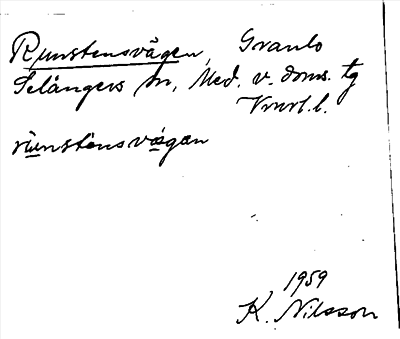 Runstensvägen, Granlo
Selångers sn, Med. v. doms. tg
Vrml.l.
runstensvägan
1959
K. Nilsson